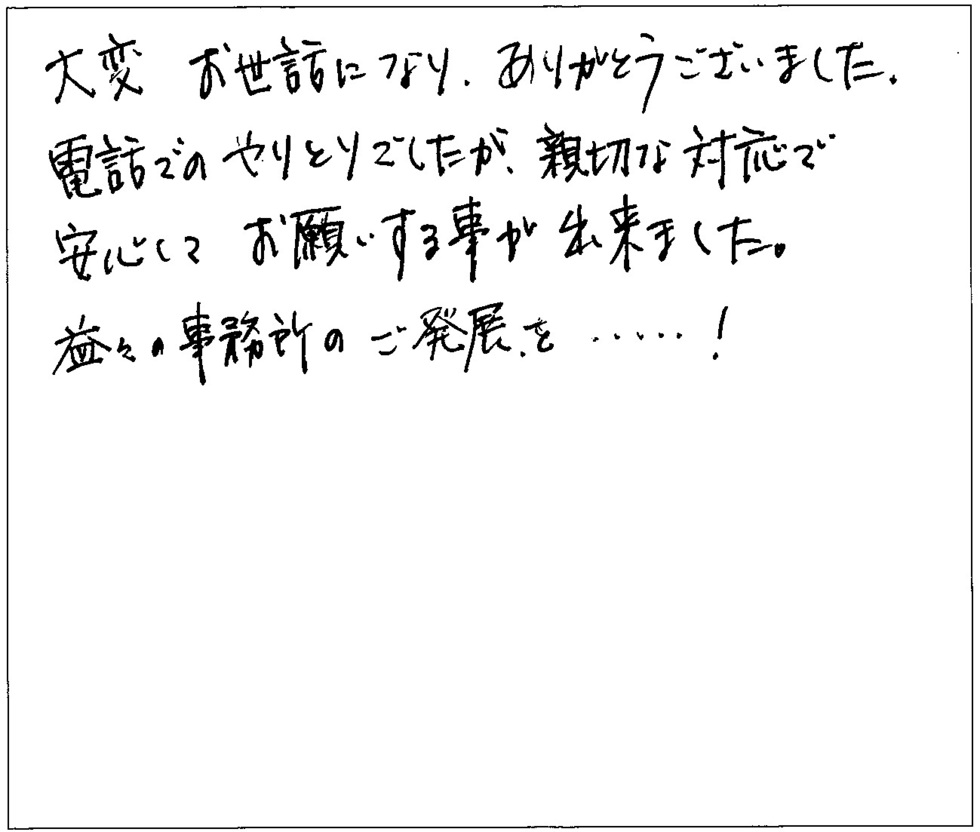 大変 お世話になり、ありがとうございました。
電話でのやりとりでしたが、親切な対応で
安心して お願いする事が出来ました。
益々の事務所のご発展を……！